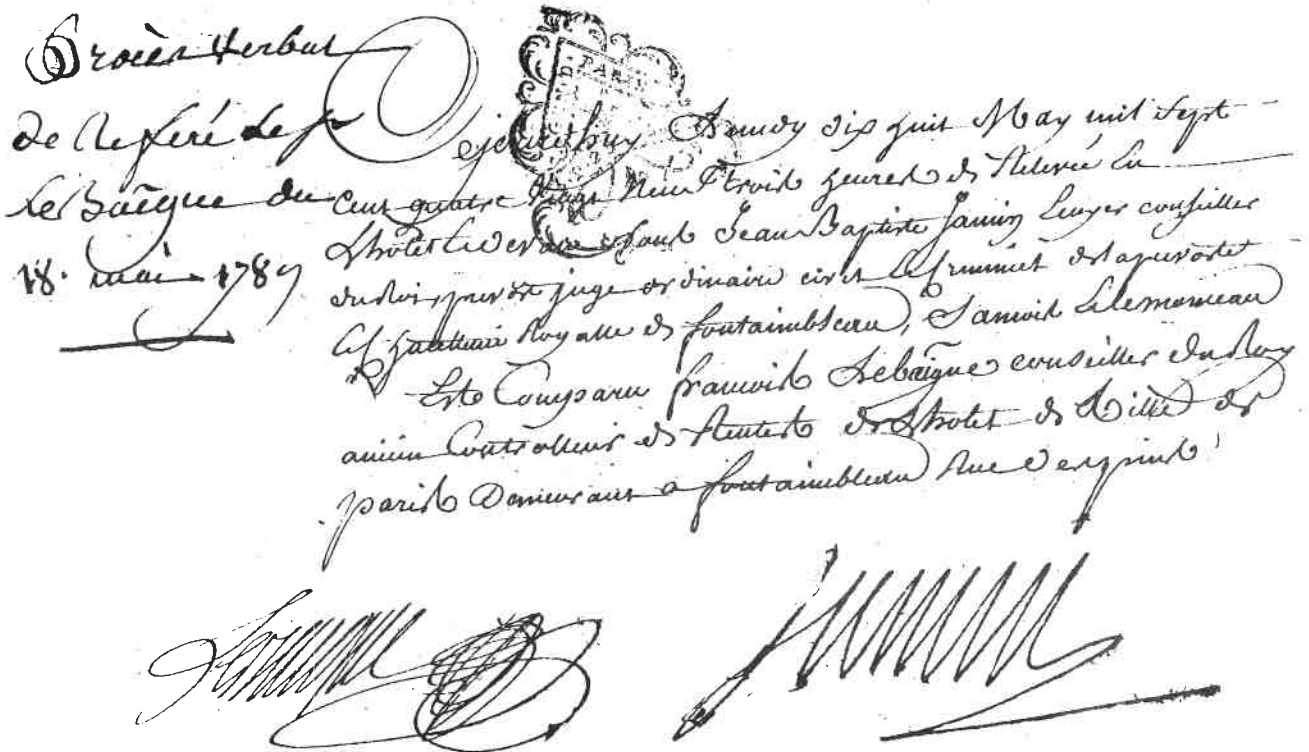 Procès Verbal
de Referé de Sr
le Baigue du
18. mai 1789
Cejourdhuy Lundy dix huit May mil Sept
Cent quatre vingt Neuf trois heures de Relevée En
Lhotel et devant Nous Jean Baptiste Jamin Ecuyer conseiller
du Roi, prevot juge ordinaire civil et Criminel de la prevosté
et Chatellenie Royalle de fontainebleau, Samois
Este Comparu francois Lebaigue conseiller du Roy
ancien Controlleur des Rentes de Lhotel de Ville de
paris Demeurant a fontainebleau Rue
PARIS
Lebaigue
Jamin